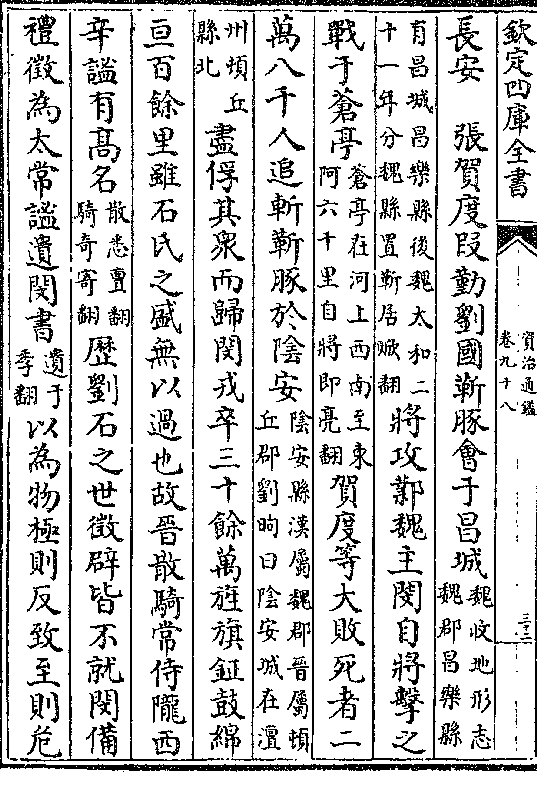 欽定四庫全書
資治通鑑
卷九十八
長安　張賀度段勤劉國靳豚會于昌城
魏收地形志
魏郡昌樂縣
有昌城昌樂縣後魏太和二
十一年分魏縣置靳居焮翻
將攻鄴魏主閔自將擊之
戰于蒼亭
蒼亭在河上西南至東
阿六十里自將即亮翻
賀度等大敗死者二
萬八千人追斬靳豚於陰安
陰安縣漢屬魏郡晉屬頓
丘郡劉昫曰陰安城在澶
州頓丘
縣北
盡俘其衆而歸閔戎卒三十餘萬旌旗鉦鼓綿
亘百餘里雖石氏之盛無以過也故晉散騎常侍隴西
辛謐有髙名
散悉亶翻
騎奇寄翻
歴劉石之世徵辟皆不就閔備
禮徵為太常謐遺閔書
遺于
季翻
以為物極則反致至則危